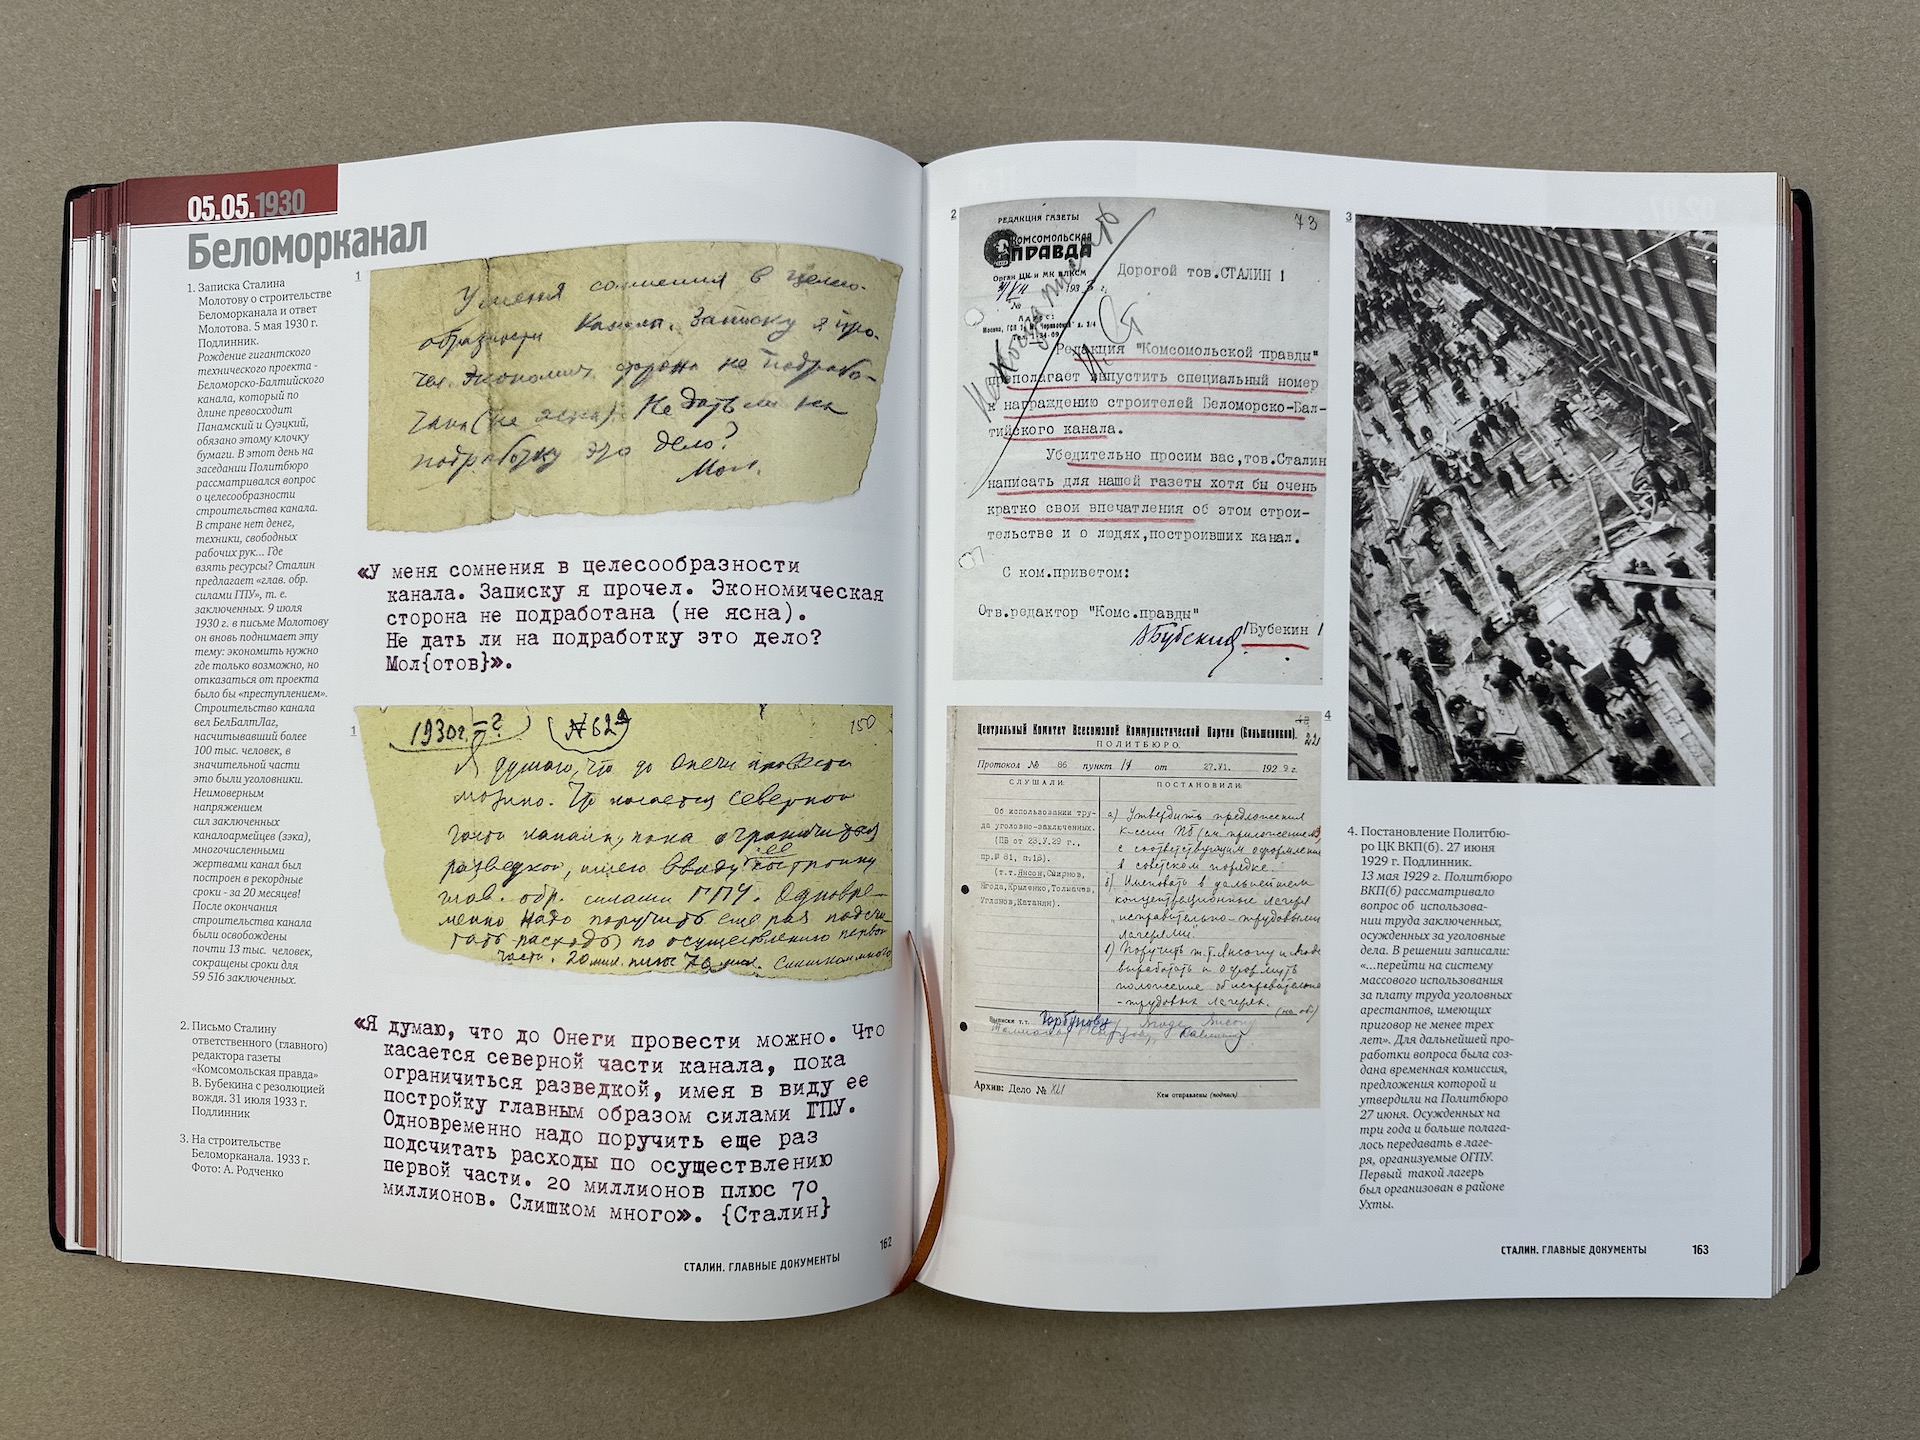 05.05.1930
Беломорканал
1. Записка Сталина
Молотову о строительстве
Беломорканала и ответ
Молотова. 5 мая 1930 г.
Подлинник.
Рождение гигантского
технического проекта -
Беломорско-Балтийского
канала, который по
длине превосходит
Панамский и Суэцкий,
обязано этому клочку
бумаги. В этот день на
заседании Политбюро
рассматривался вопрос
о целесообразности
строительства канала.
В стране нет денег,
техники, свободных
рабочих рук... Где
взять ресурсы? Сталин
предлагает «глав. обр.
силами ГПУ», т. е.
заключенных. 9 июля
1930 г. в письме Молотову
он вновь поднимает эту
тему: экономить нужно
где только возможно, но
отказаться от проекта
было бы «преступлением».
Строительство канала
вел БелБалтЛаг,
насчитывавший более
100 тыс. человек, в
значительной части
это были уголовники.
Неимоверным
напряжением
сил заключенных
каналоармейцев (зэка),
многочисленными
жертвами канал был
построен в рекордные
сроки - за 20 месяцев!
После окончания
строительства канала
были освобождены
почти 13 тыс. человек,
сокращены сроки для
59 516 заключенных.
2. Письмо Сталину
ответственного (главного)
редактора газеты
«Комсомольская правда»
В. Бубекина с резолюцией
вождя. 31 июля 1933 г.
Подлинник
3. На строительстве
Беломорканала. 1933 г.
Фото: А. Родченко
1
У меня сомнения в целесо-
образности Канала. Записку я про-
чел. Экономич. сторона не подрабо-
тана (не ясна). Не дать ли на
подработку это дело?
Мол.
«У меня сомнения в целесообразности
канала. Записку я прочел. Экономическая
сторона не подработана (не ясна).
Не дать ли на подработку это дело?
Мол{отов}».
1
1930г. №62 150
Я думаю, что до Онеги провести
можно. Что касается северной
части канала, пока ограничиться
разведкой, имея ввиду ее постройку
глав. обр. силами ГПУ. Одновре-
менно надо поручить еще раз подсчи-
тать расходы по осуществлению первой
части. 20 мил. плюс 70 мил. Слишком много
«Я думаю, что до Онеги провести можно. Что
касается северной части канала, пока
ограничиться разведкой, имея в виду ее
постройку главным образом силами ГПУ.
Одновременно надо поручить еще раз
подсчитать расходы по осуществлению
первой части. 20 миллионов плюс 70
миллионов. Слишком много». {Сталин}
162
СТАЛИН. ГЛАВНЫЕ ДОКУМЕНТЫ
2
73
РЕДАКЦИЯ ГАЗЕТЫ
КОМСОМОЛЬСКАЯ
ПРАВДА
Орган ЦК и МК ВЛКСМ
1933 г.
№
АДРЕС:
Дорогой тов.СТАЛИН !
Редакция "Комсомольской правды"
преполагает выпустить специальный номер
к награждению строителей Беломорско-Бал-
тийского канала.
Убедительно просим вас,тов.Сталин
написать для нашей газеты хотя бы очень
кратко свои впечатления об этом строи-
тельстве и о людях,построивших канал.
С ком.приветом:
Отв.редактор "Комс.правды"
/Бубекин/
3
4
Центральный Комитет Всесоюзной Коммунистической Партии (Большевиков).
ПОЛИТБЮРО.
Протокол № 86 пункт 14 от 27.VI. 1929 г.
СЛУШАЛИ:
Об использовании тру-
да уголовно-заключенных.
(ПБ от 23.V.29 г.,
пр.№ 81, п.18).
(т.т.Янсон,Смирнов,
Ягода,Крыленко,Толмачев,
Угланов,Катанян).
ПОСТАНОВИЛИ:
а) Утвердить предложения
к-ссии ПБ (см. приложение),
с соответствующим оформлением
в советском порядке.
б) Именовать в дальнейшем
концентрационные лагеря
"исправительно-трудовыми
лагерями".
в) Поручить т.т.Янсону и Ягоде
выработать и оформить
положение об исправительно
-трудовых лагерях.
Выписки т.т.
Архив: Дело № XLI
Кем отправлены (подпись)
4. Постановление Политбю-
ро ЦК ВКП(б). 27 июня
1929 г. Подлинник.
13 мая 1929 г. Политбюро
ВКП(б) рассматривало
вопрос об использова-
нии труда заключенных,
осужденных за уголовные
дела. В решении записали:
«...перейти на систему
массового использования
за плату труда уголовных
арестантов, имеющих
приговор не менее трех
лет». Для дальнейшей про-
работки вопроса была соз-
дана временная комиссия,
предложения которой и
утвердили на Политбюро
27 июня. Осужденных на
три года и больше полага-
лось передавать в лаге-
ря, организуемые ОГПУ.
Первый такой лагерь
был организован в районе
Ухты.
СТАЛИН. ГЛАВНЫЕ ДОКУМЕНТЫ 163